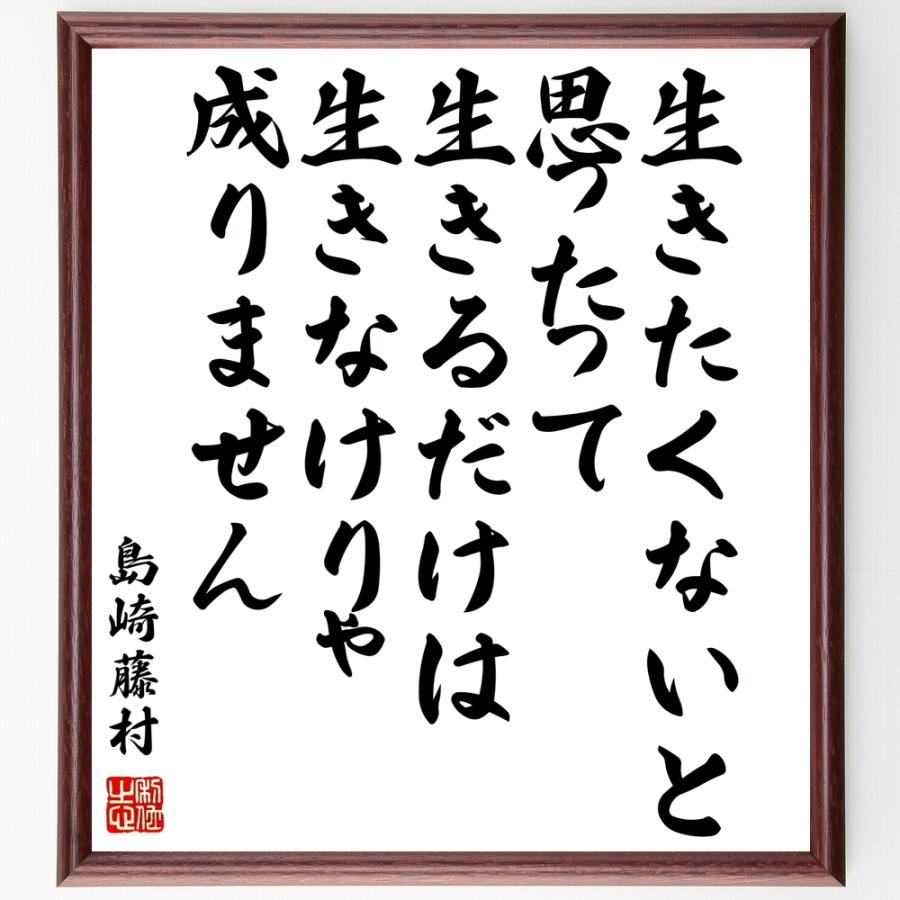 生きたくないと
思ったって
生きるだけは
生きなけりゃ
成りません
島崎藤村